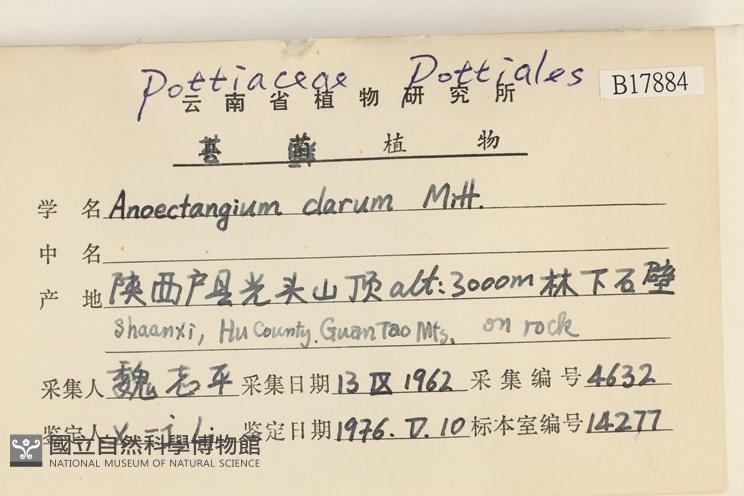 Pottiaceae Pottiales
B17884
云南省植物研究所
苔藓植物
学名 Anoectangium clarum Mitt.
中名
产地 陕西户县光头山顶 alt: 3000m 林下石壁
Shaanxi, Hu County. GuanTao Mts. on rock
采集人 魏志平 采集日期 13 IX 1962 采集编号 4632
鉴定人 X-j Li 鉴定日期 1976. V. 10 标本室编号 14277
國立自然科學博物館
NATIONAL MUSEUM OF NATURAL SCIENCE